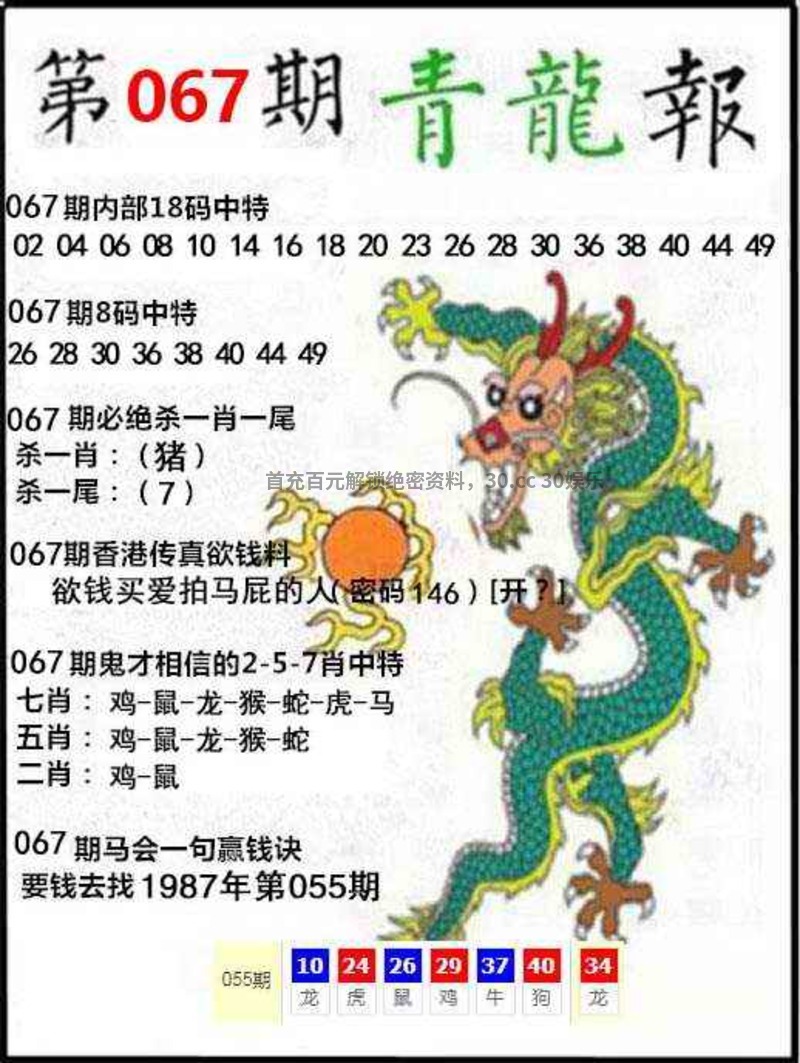 第067期青龍報
067期内部18码中特
02 04 06 08 10 14 16 18 20 23 26 28 30 36 38 40 44 49
067期8码中特
26 28 30 36 38 40 44 49
067期必绝杀一肖一尾
杀一肖：（猪）
杀一尾：（7）
首充百元解锁绝密资料，30.cc 30娱乐
067期香港传真欲钱料
欲钱买爱拍马屁的人（密码146）[开？]
067期鬼才相信的2-5-7肖中特
七肖：鸡-鼠-龙-猴-蛇-虎-马
五肖：鸡-鼠-龙-猴-蛇
二肖：鸡-鼠
067期马会一句赢钱诀
要钱去找1987年第055期
055期 10 24 26 29 37 40 34
龙 虎 鼠 鸡 牛 狗 龙